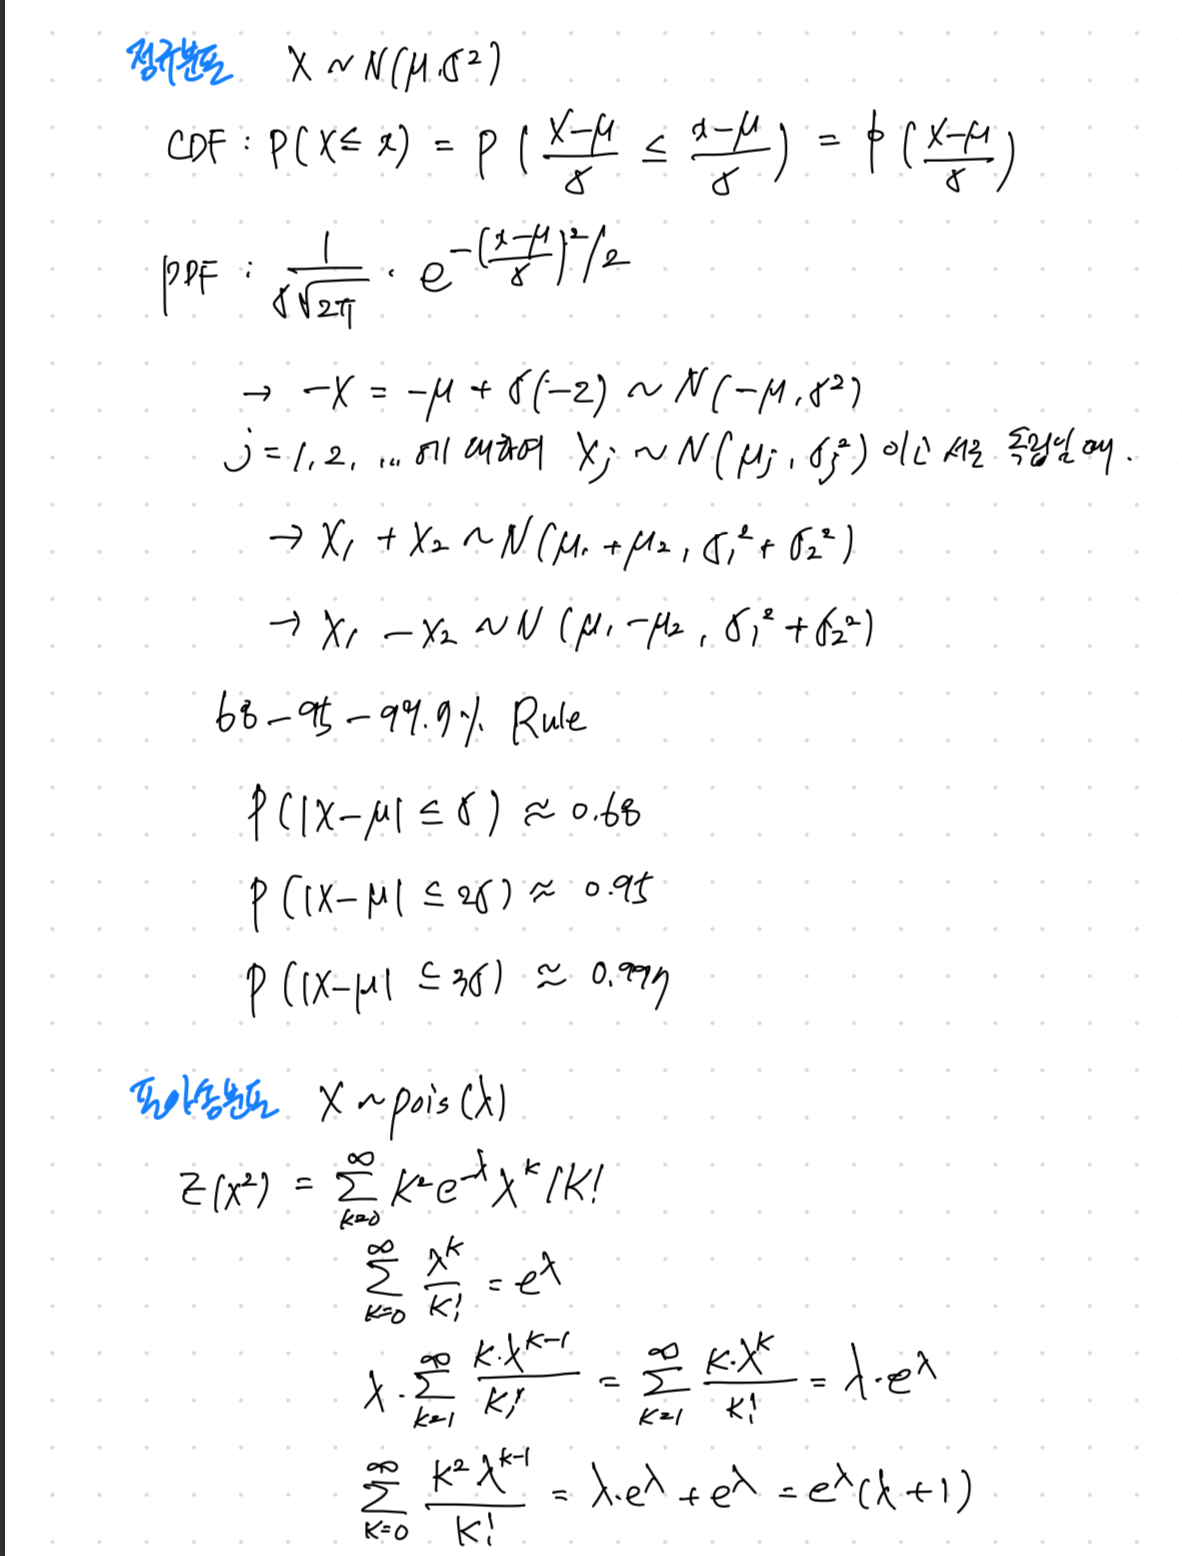 정규분포 X ~ N(μ, σ²)
CDF : P(X ≤ x) = P( (X-μ)/σ ≤ (x-μ)/σ ) = Φ( (X-μ)/σ )
PDF : 1/(σ√2π) · e^{-((x-μ)/σ)²/2}
→ -X = -μ + σ(-z) ~ N(-μ, σ²)
j = 1, 2, ... 에 대하여 Xj ~ N(μj, σj²) 이고 서로 독립일 때.
→ X₁ + X₂ ~ N(μ₁ + μ₂, σ₁² + σ₂²)
→ X₁ - X₂ ~ N(μ₁ - μ₂, σ₁² + σ₂²)
68-95-99.9% Rule
P(|X-μ| ≤ σ) ≈ 0.68
P(|X-μ| ≤ 2σ) ≈ 0.95
P(|X-μ| ≤ 3σ) ≈ 0.997
포아송분포 X ~ pois(λ)
E(x²) = Σ_{k=0}^{∞} k² e^{-λ} λ^k / k!
Σ_{k=0}^{∞} λ^k / k! = e^λ
λ · Σ_{k=1}^{∞} k·λ^{k-1} / k! = Σ_{k=1}^{∞} k·λ^k / k! = λ·e^λ
Σ_{k=0}^{∞} k² λ^{k-1} / k! = λ·e^λ + e^λ = e^λ(λ+1)